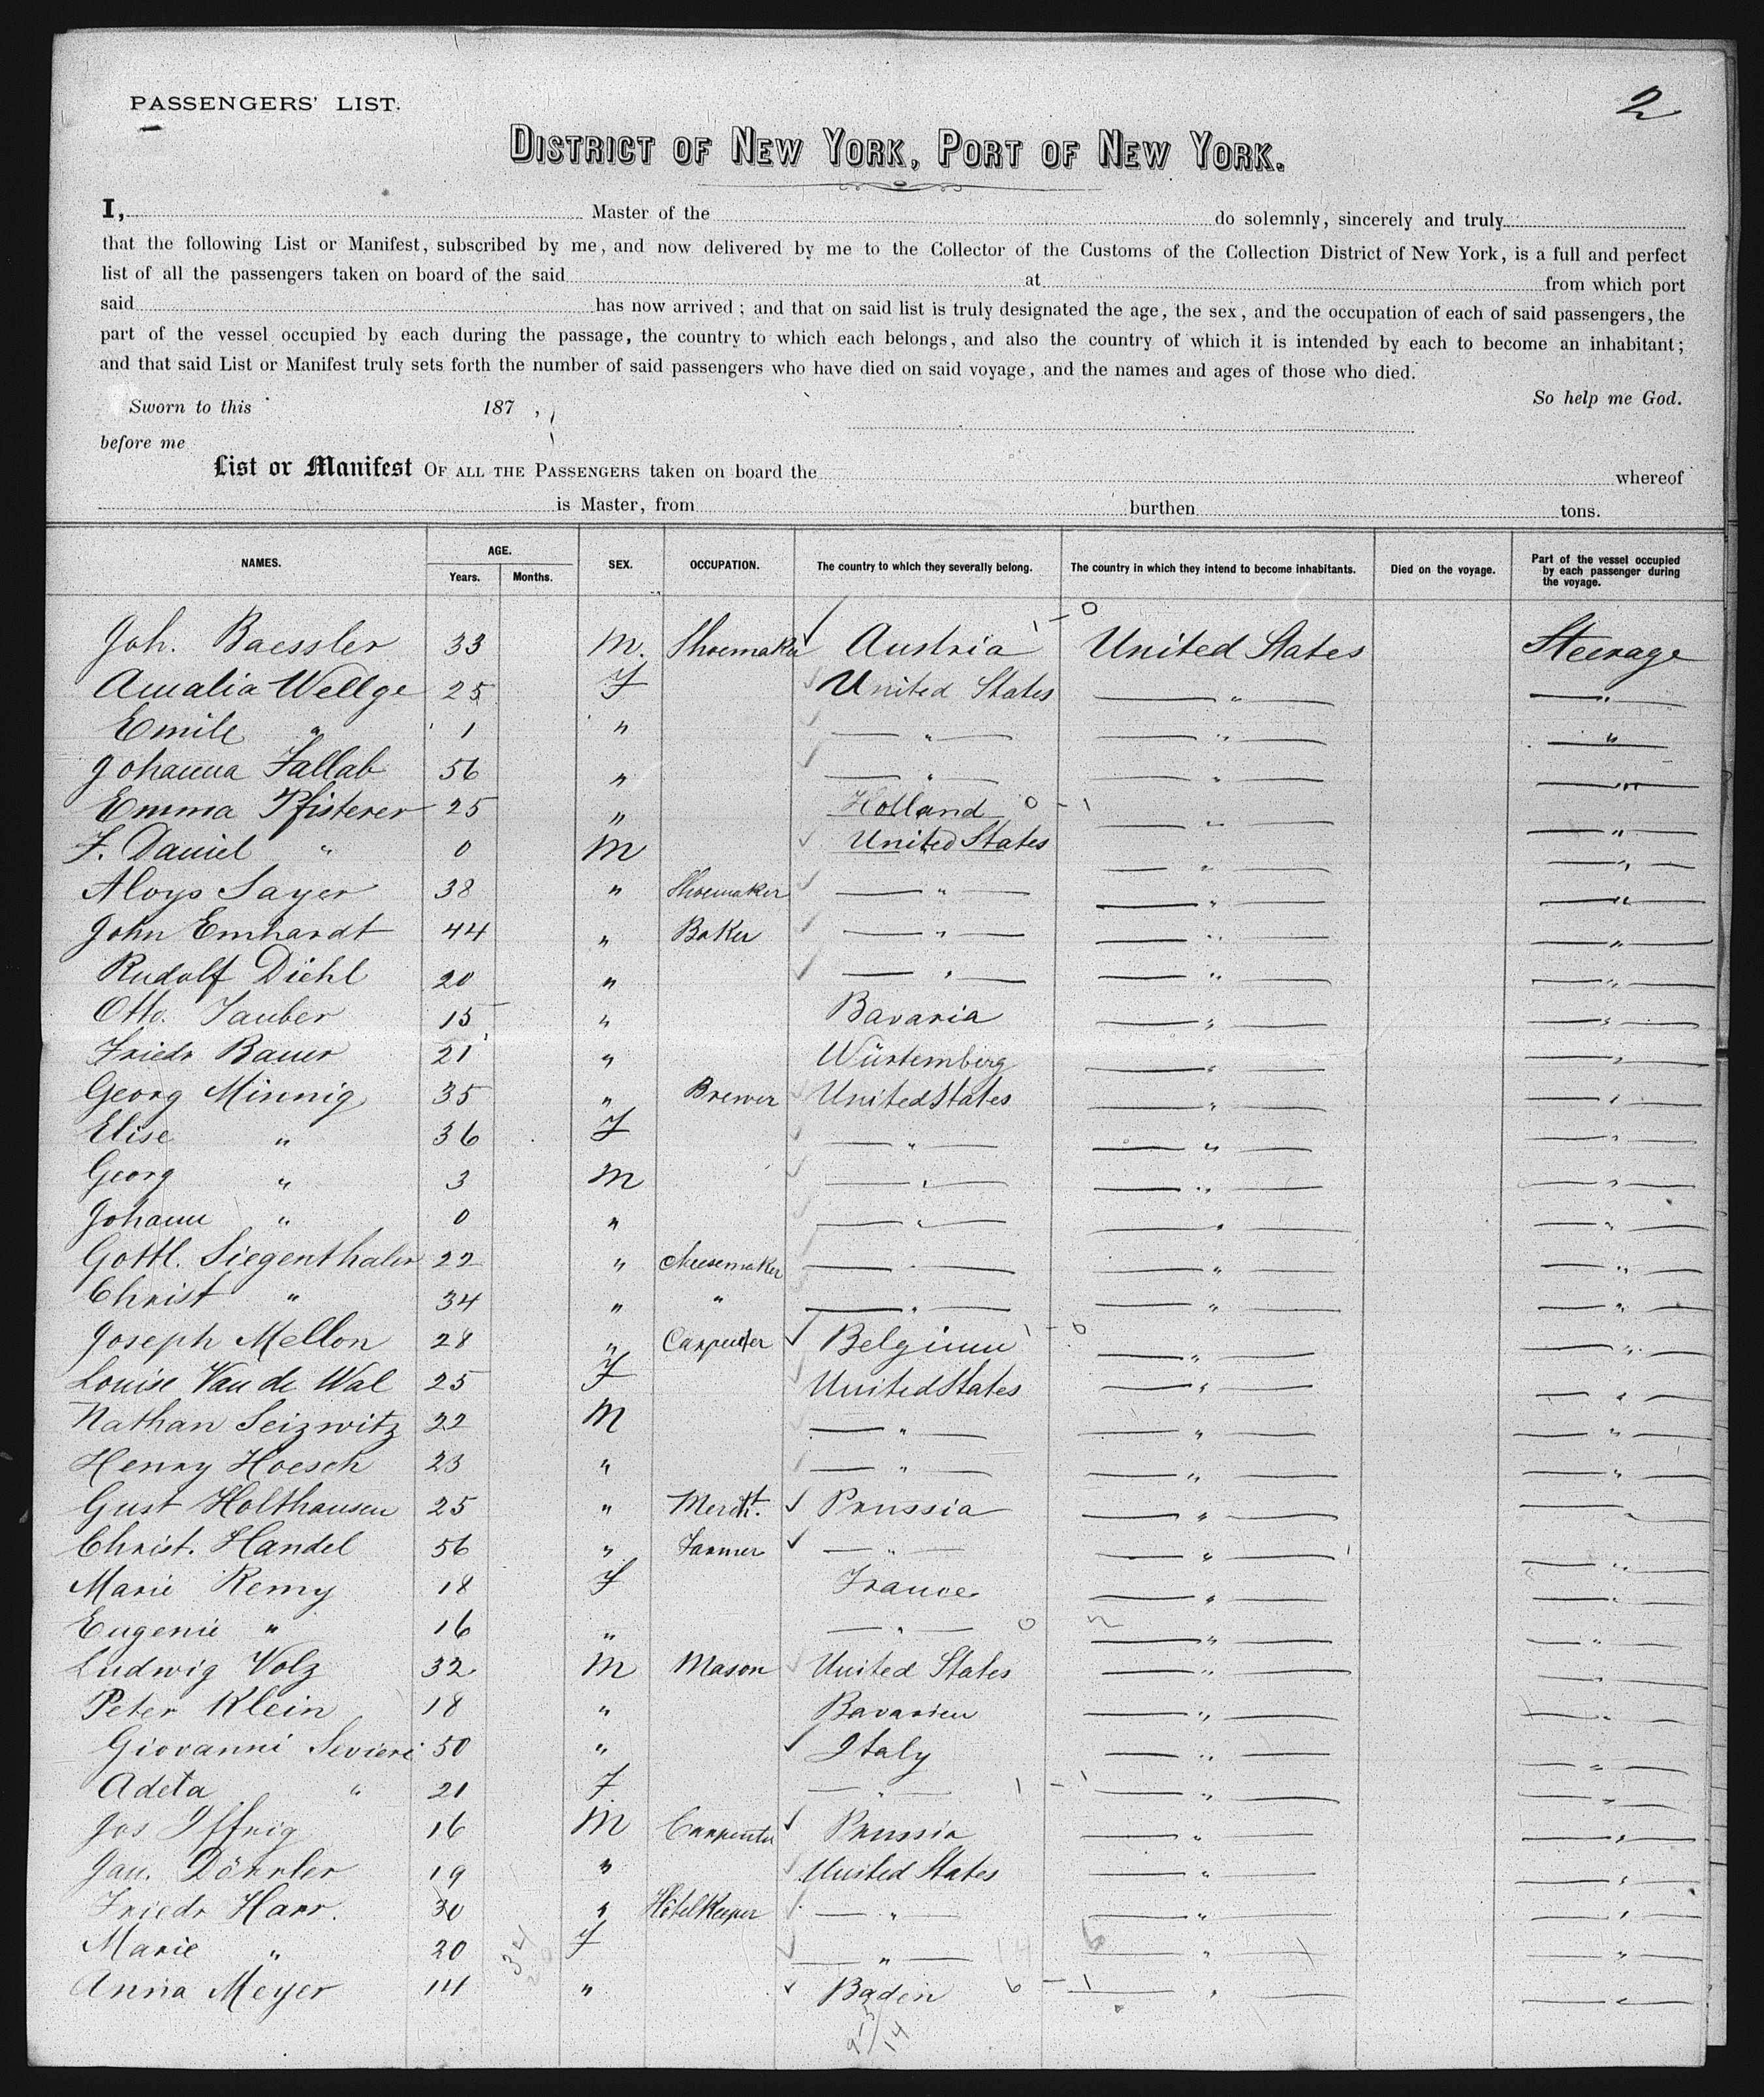 PASSENGERS' LIST.
2
DISTRICT OF NEW YORK, PORT OF NEW YORK.
I, Master of the do solemnly, sincerely and truly
that the following List or Manifest, subscribed by me, and now delivered by me to the Collector of the Customs of the Collection District of New York, is a full and perfect
list of all the passengers taken on board of the said at from which port
said has now arrived; and that on said list is truly designated the age, the sex, and the occupation of each of said passengers, the
part of the vessel occupied by each during the passage, the country to which each belongs, and also the country of which it is intended by each to become an inhabitant;
and that said List or Manifest truly sets forth the number of said passengers who have died on said voyage, and the names and ages of those who died.
So help me God.
Sworn to this 187 ,
before me
List or Manifest OF ALL THE PASSENGERS taken on board the whereof
is Master, from burthen tons.
NAMES. AGE. Years. Months. SEX. OCCUPATION. The country to which they severally belong. The country in which they intend to become inhabitants. Died on the voyage. Part of the vessel occupied by each passenger during the voyage.
Joh. Baessler 33 M. Shoemaker Austria 1 - 0 United States Steerage
Amalia Wellge 25 F United States " "
Emile " 1 " " " "
Johanna Fallab 56 " " " "
Emma Pfisterer 25 " Holland 0 - 1 " "
F. Daniel " 0 M United States " "
Aloys Sayer 38 " Shoemaker " " "
John Emhardt 44 " Baker " " "
Rudolf Diehl 20 " " " "
Otto. Tauber 15 " Bavaria " "
Friedr Bauer 21 " Würtemberg " "
Georg Minnig 35 " Brewer United States " "
Elise " 36 F " " "
Georg " 3 M " " "
Johann " 0 " " " "
Gottl. Siegenthaler 22 " Cheesemaker " " "
Christ " 34 " " " " "
Joseph Mellon 28 " Carpenter Belgium 1 - 0 " "
Louise Van de Wal 25 F United States " "
Nathan Seizwitz 22 M " " "
Henry Hoesch 23 " " " "
Gust Holthausen 25 " Mercht. Prussia " "
Christ. Handel 56 " Farmer " " "
Marie Remy 18 F France " "
Eugenie " 16 " " 0 2 " "
Ludwig Volz 32 M Mason United States " "
Peter Klein 18 " Bavarien " "
Giovanni Sevieri 50 " Italy " "
Adeta " 21 F " 1 - 1 " "
Jos Iffrig 16 M Carpenter Prussia " "
Jan. Dörrler 19 " United States " "
Friedr Harr. 30 " Hotelkeeper " " "
Marie " 20 F " 14 6 " "
Anna Meyer 14 " Baden 6 - 1 " "
34